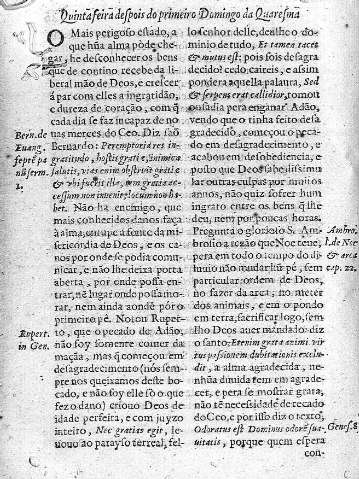 Quinta feira despois do primeiro Domingo da Quaresma
O Mais perigoso estado, a
que hũa alma póde che-
gar, he desconhecer os bens
que de contino recebe da li-
beral mão de Deos, e crescer
á par com elles a ingratidão,
e dureza de coração, com q̃
cada dia se faz incapaz de no
uas merces do Ceo. Diz saõ
Bernardo: Peremptoria res in-
gratitudo, hostis gratiæ, inimica
salutis,
accessum non inuenit; locum non ha-
bet. Não ha enemigo, que
mais conhecidos danos faça
á alma, que a fonte da mi-
sericordia de Deos, e os ca-
nos por onde se podia comu-
nicar, e não lhe deixa porta
aberta, por onde possa en-
trar, nê lugar onde possa mo-
rar, nem ainda aonde pór o
primeiro pé. Notou Ruper-
to, que o pecado de Adão,
não foy somente comer da
maçaã, mas q̃ começou em
desagradecimento (nós sem-
pre nos queixamos deste bo-
cado, e não foy elle só o que
fez o dano) criou o Deos de
idade perfeita, e com juyzo
inteiro, Nec gratias egit, le-
uouo ao parayso terreal, fel-
Bern. de
Euang.
serm.
2.
Rupert.
in Gen.
lo senhor delle, deulhe o do-
minio de tudo, Et tamen tacet
& mutus est; pois sois desagra
decido? cedo caireis, e assim
pondera aquella palaura, Sed
& serpens erat callidior, tomou
ousadia pera enganar Adão,
vendo que o tinha feito desa
gradecido, começou o peca-
do em desagradecimento, e
acabou em desobediencia, e
posto que Deos a hedissima
lar outras culpas por muitos
annos, não quiz sofrer hum
ingrato entre os bens q̃ lhe
deu, nem por poucas horas.
Pregunta o glorioso S. Am-
brosio a rezão que Noe teue,
pera em todo o tempo do di-
luuio não mudar hũ pé, sem
particular ordem de Deos,
no fazer da arca, no meter
dos animais, e em o pondo
em terra, sacrificar logo, sem
lho Deos auer mandado: diz
o santo: Etenim grata animi vir
tus passionem dubitationis exclu-
dit, a alma agradecida, ne-
nhũa duuida tem em agrade-
cer, e pera se mostrar grata,
não tẽ necessidade de recado
do Ceo, e por isso diz o texto,
Odoratus est Dominus odorẽ sua-
uitatis, porque quem espera
con-
Ambro.
l. de Noe
& arca
cap. 22.
Genes. 8.